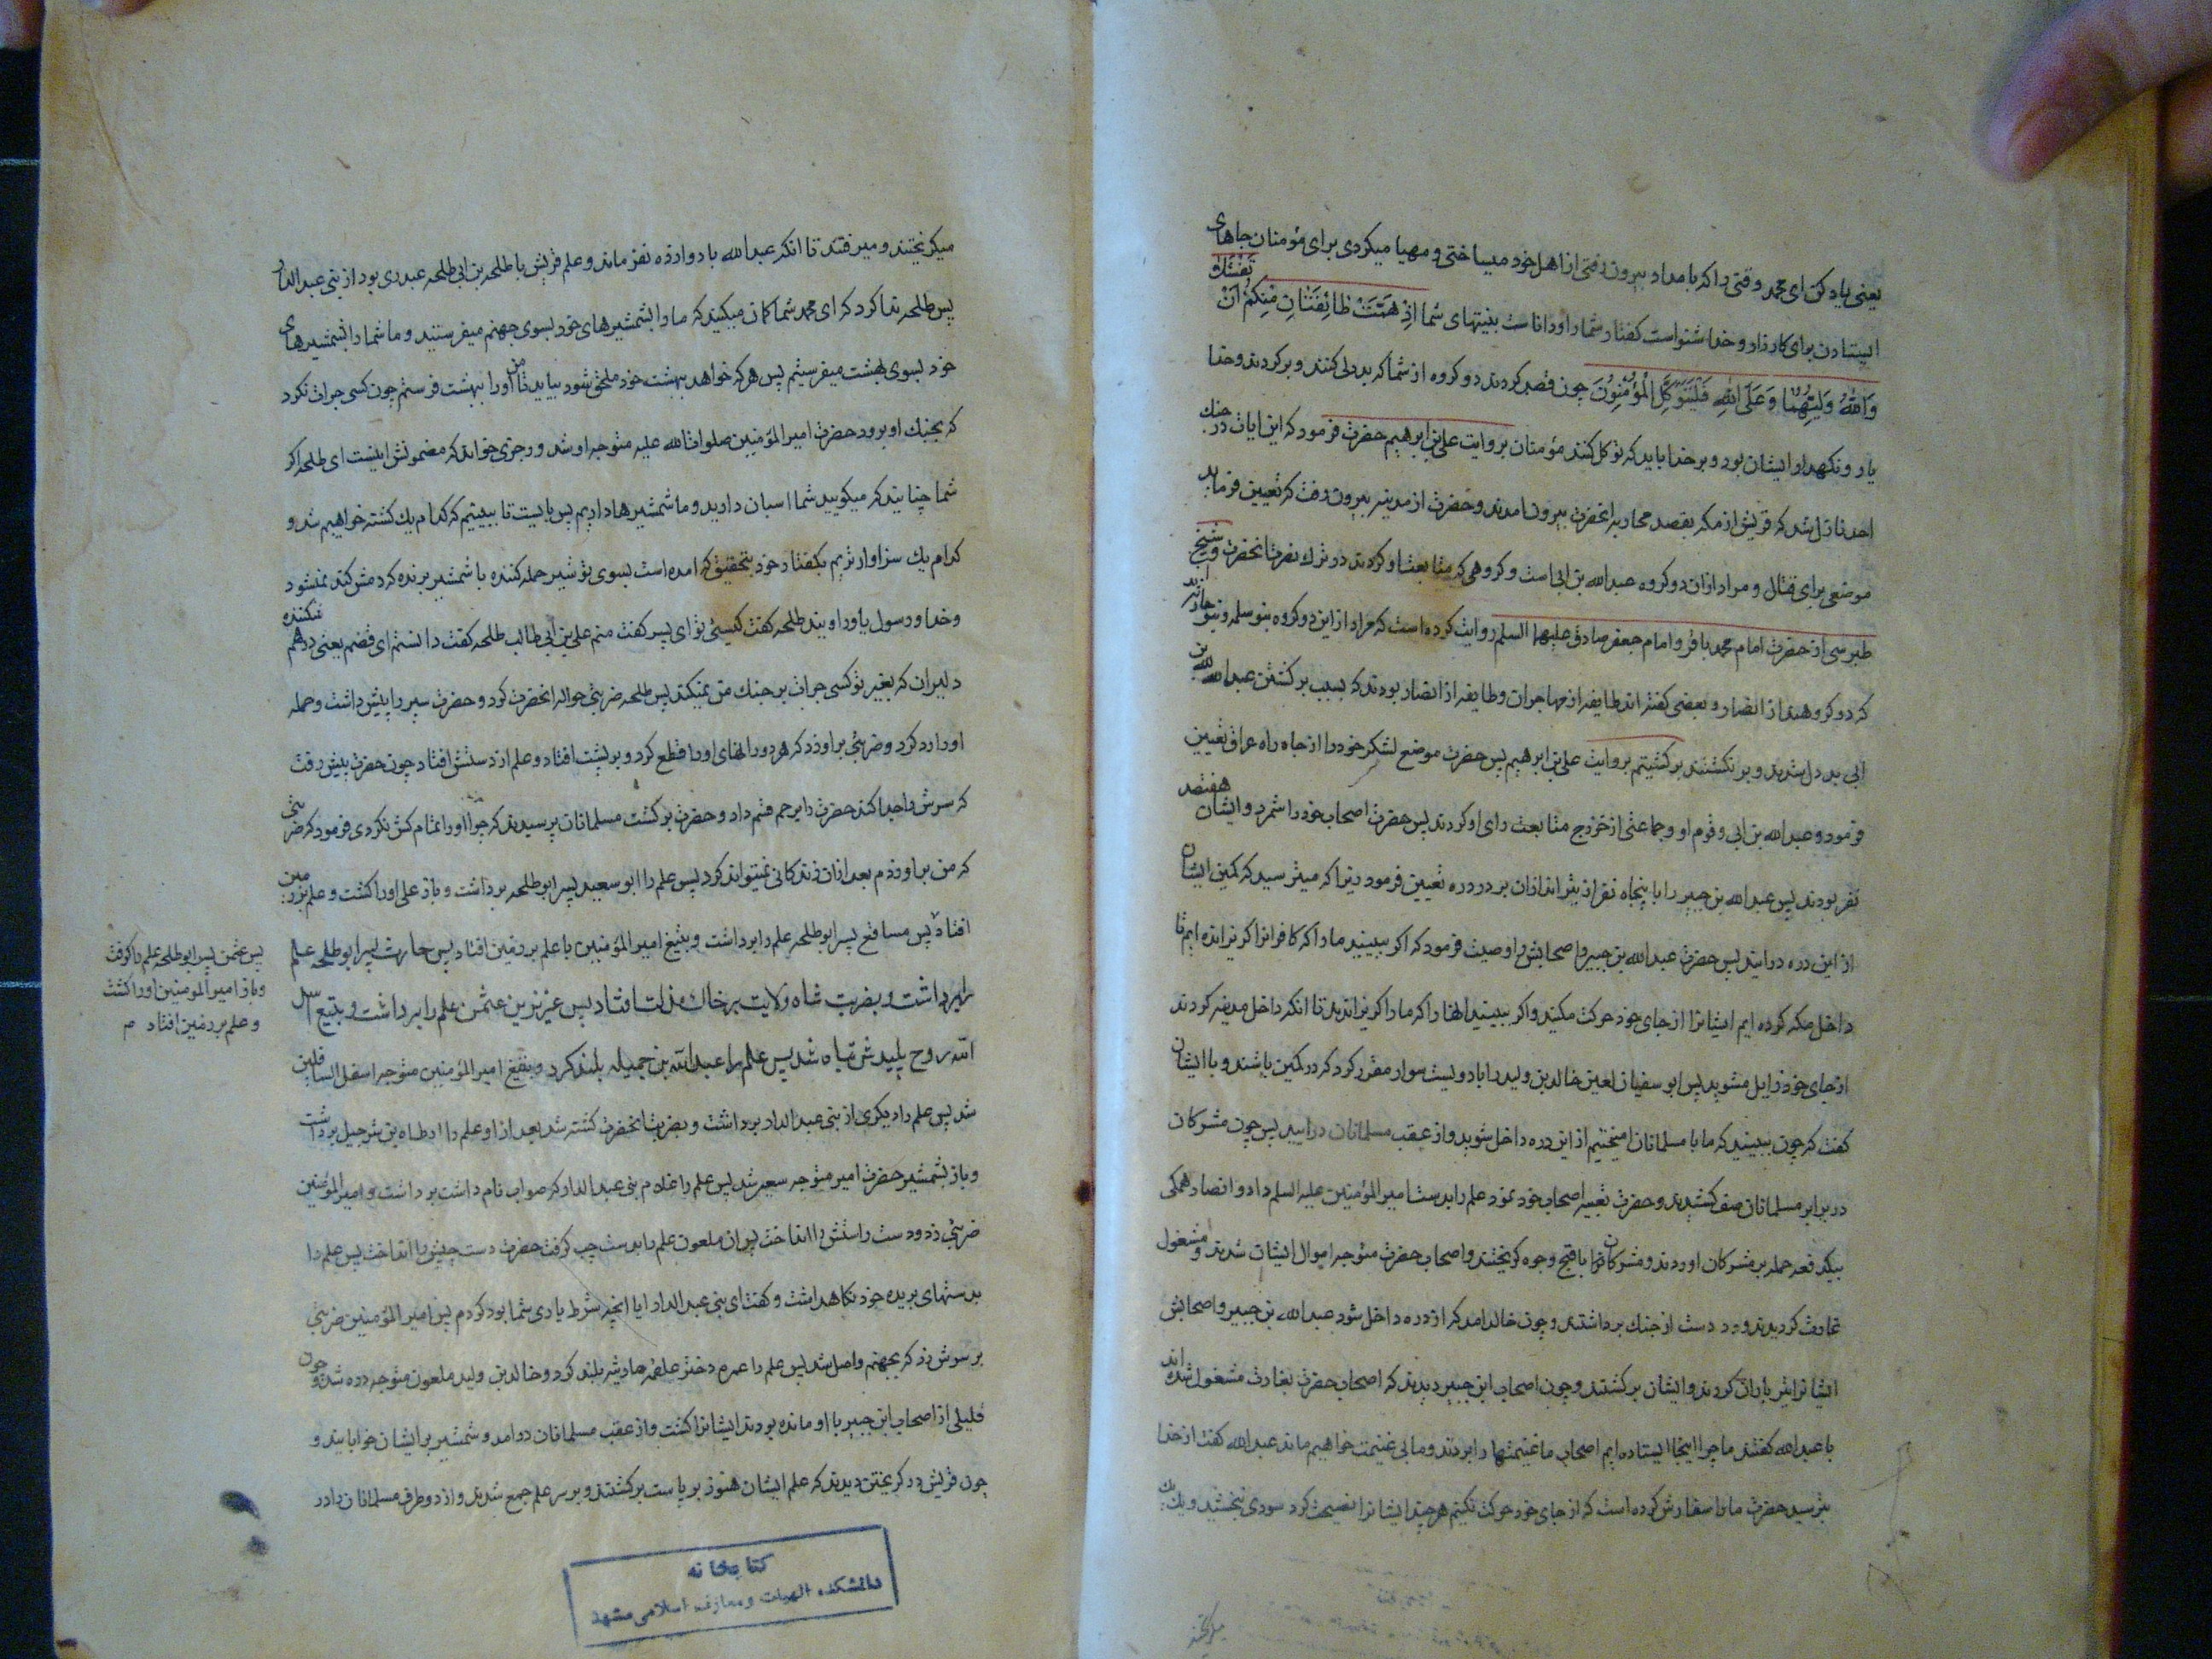 یعنی یاد کن ای محمد وقتی را که بامداد بیرون رفتی از اهل خود میساختی و مهیا میکردی برای مؤمنان جاهای
ایستادن برای کارزار و خدا شنواست گفتار شما را و داناست بنیتهای شما اِذْ هَمَّتْ طَائِفَتَانِ مِنْکُمْ اَنْ تَفْشَلَا
وَاللّٰهُ وَلِیُّهُمَا وَعَلَی اللّٰهِ فَلْیَتَوَکَّلِ الْمُؤْمِنُونَ چون قصد کردند دو کروه از شما که بددلی کنند و برکردند و خدا
یار و نکهدار ایشان بود و بر خدا باید که توکل کنند مؤمنان بروایت علی بن ابرهیم حضرت فرمود که این ایات در جنك
احد نازل شد که قریش از مکه بقصد محاربه انحضرت بیرون امدند و حضرت از مدینه بیرون رفت که تعیین فرماید
موضعی برای قتال و مراد ازان دو کروه عبدالله بن ابی است و کروهی که متابعت او کردند در ترك نصرت انحضرت و شیخ
طبرسی از حضرت امام محمد باقر و امام جعفر صادق علیهما السلم روایت کرده است که مراد از این دو کروه بنو سلمه و بنو حارثه اند
که دو کروهند از انصار و بعضی کفته اند طایفه از مهاجران و طایفه از انصار بودند که بسبب برکشتن عبدالله بن
ابی بددل شدند و برنکشتند برکشتیم بروایت علی بن ابرهیم پس حضرت موضع لشکر خود را از جاه راه عراق تعیین
فرمود و عبدالله بن ابی و قوم او و جماعتی از خزرج متابعت رای او کردند پس حضرت اصحاب خود را شمرد و ایشان هفتصد
نفر بودند پس عبدالله بن جبیر را با پنجاه نفر از تیراندازان بر در دره تعیین فرمود زیرا که میترسید که کمین ایشان
از این دره درایند پس حضرت عبدالله بن جبیر و اصحابش را وصیت فرمود که اکر ببینید ما را که کافرانرا کریزانده ایم تا
داخل مکه کرده ایم ایشانرا از جای خود حرکت مکنید و اکر ببینید انها را که ما را کریزاندند تا انکه داخل مدینه کردند
از جای خود زایل مشوید پس ابو سفیان لعین خالد بن ولید را با دویست سوار مقرر کرد که در کمین باشند و با ایشان
کفت که چون ببینید که ما با مسلمانان امیختیم از این دره داخل شوید و از عقب مسلمانان درایید پس چون مشرکان
در برابر مسلمانان صف کشیدند و حضرت تعبیه اصحاب خود نمود علم را بدست امیرالمؤمنین علیه السلم داد و انصار همکی
بیکدفعه حمله بر مشرکان اوردند و مشرکان باقبح وجوه کریختند و اصحاب حضرت متوجه اموال ایشان شدند و مشغول
غارت کردیدند و دست از جنك برداشتند و چون خالد امد که از دره داخل شود عبدالله بن جبیر و اصحابش
ایشانرا تیرباران کردند و ایشان برکشتند و چون اصحاب ابن جبیر دیدند که اصحاب حضرت بغارت مشغول شده اند
با عبدالله کفتند ما چرا اینجا ایستاده ایم اصحاب ما غنیمتها را بردند و ما بی غنیمت خواهیم ماند عبدالله کفت از خدا
بترسید حضرت ما را سفارش کرده است که از جای خود حرکت نکنیم هرچند ایشانرا نصیحت کرد سودی نبخشید و یك یك
میکریختند
میکریختند و میرفتند تا انکه عبدالله با دوازده نفر ماند و علم قریش با طلحه بن ابی طلحه عبدری بود از بنی عبدالدار
پس طلحه ندا کرد که ای محمد شما کمان میکنید که ما را بشمشیرهای خود بسوی جهنم میفرستید و ما شما را بشمشیرهای
خود بسوی بهشت میفرستیم پس هر که خواهد ببهشت خود ملحق شود بیاید تا من اورا ببهشت فرستم چون کسی جرات نکرد
که بجنك او برود حضرت امیرالمؤمنین صلوات الله علیه متوجه او شد و رجزی خواند که مضمونش اینست ای طلحه اکر
شما چنانید که میکویید شما اسبان دارید و ما شمشیرها داریم پس بایست تا ببینیم که کدام یك کشته خواهیم شد و
کدام یك سزاوارتریم بکفتار خود بتحقیق که امده است بسوی تو شیر حمله کننده با شمشیر برنده که دمش کند نمیشود
و خدا و رسول یاور اویند طلحه کفت کیستی تو ای پسر کفت منم علی بن ابی طالب طلحه کفت دانستم ای قضم یعنی درهم شکننده
دلیران که بغیر تو کسی جرات بر جنك من نمیکند پس طلحه ضربتی حواله انحضرت کرد و حضرت سپر را پیش داشت و حمله
اورا رد کرد و ضربتی براو زد که هر دو رانهای اورا قطع کرد و بر پشت افتاد و علم از دستش افتاد چون حضرت پیش رفت
که سرش را جدا کند حضرت را برحم قسم داد و حضرت برکشت مسلمانان پرسیدند که چرا اورا تمام کش نکردی فرمود که ضربتی
که من براو زدم بعد ازان زندکانی نمیتواند کرد پس علم را ابو سعید پسر ابو طلحه برداشت و باز علی اورا کشت و علم بر زمین
افتاد پس مسافع پسر ابو طلحه علم را برداشت و بتیغ امیرالمؤمنین با علم بر زمین افتاد پس حارث پسر ابو طلحه علم
پس عثمن پسر ابو طلحه علم را کرفت
و باز امیرالمؤمنین اورا کشت
و علم بر زمین افتاد
را برداشت و بضربت شاه ولایت بر خاك مذلت افتاد پس عزیز بن عثمن علم را برداشت و بتیغ اسد
الله روح پلیدش تباه شد پس علم را عبدالله بن جمیله بلند کرد و بتیغ امیرالمؤمنین متوجه اسفل السافلین
شد پس علم را دیکری از بنی عبدالدار برداشت و بضربت انحضرت کشته شد بعد از او علم را ارطاه بن شرحبیل برداشت
و باز بشمشیر حضرت امیر متوجه سعیر شد پس علم را غلام بنی عبدالدار که صواب نام داشت برداشت و امیرالمؤمنین
ضربتی زد و دست راستش را انداخت پس ان ملعون علم را بدست چپ کرفت حضرت دست چپش را انداخت پس علم را
بدستهای بریده خود نکاهداشت و کفت ای بنی عبدالدار ایا انچه شرط یاری شما بود کردم پس امیرالمؤمنین ضربتی
بر سرش زد که بجهنم واصل شد پس علم را عمره دختر علقمه حارثیه بلند کرد و خالد بن ولید ملعون متوجه دره شد و چون
قلیلی از اصحاب ابن جبیر با او مانده بودند ایشانرا کشت و از عقب مسلمانان درامد و شمشیر بر ایشان خوابانید و
چون قریش در کریختن دیدند که علم ایشان هنوز برپاست برکشتند و بر سر علم جمع شدند و از دو طرف مسلمانان را در
کتابخانه
دانشکده الهیات و معارف اسلامی مشهد